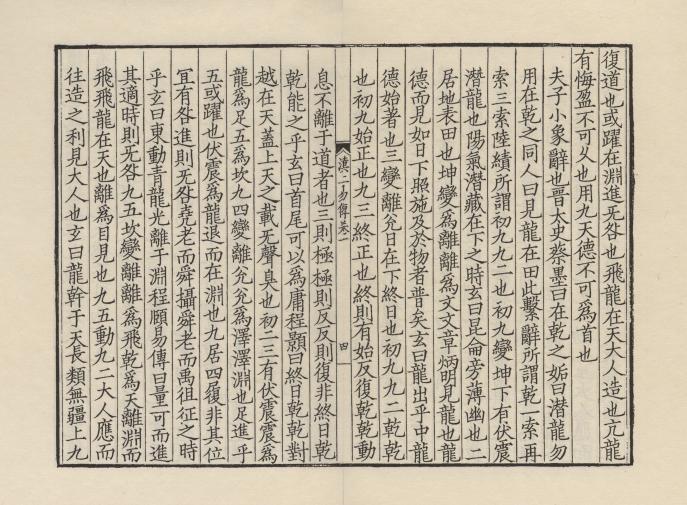 復道也或躍在淵進无咎也飛龍在天大人造也亢龍
有悔盈不可乆也用九天德不可爲首也
夫子小象辭也晋太史蔡墨曰在乾之姤曰潛龍勿
用在乾之同人曰見龍在田此繫辭所謂乾一索再
索三索陸績所謂初九九二也初九變坤下有伏震
潛龍也陽氣潛藏在下之時玄曰昆侖旁薄幽也二
居地表田也坤變爲離離爲文文章炳明見龍也龍
德而見如日下照施及於物者普矣玄曰龍出乎中龍
德始著也三變離兊日在下終日也初九九二乾乾
也初九始正也九三終正也終則有始反復乾乾動
漢上易傳卷一
四
息不離于道者也三則極極則反反則復非終日乾
乾能之乎玄曰首尾可以爲庸程顥曰終日乾乾對
越在天蓋上天之載无聲臭也初二三有伏震震爲
龍爲足五爲坎九四變離兊兊爲澤澤淵也足進乎
五或躍也伏震爲龍退而在淵也九居四履非其位
冝有咎進則无咎堯老而舜攝舜老而禹徂征之時
乎玄曰東動青龍光離于淵程頤易傳曰量可而進
其適時則无咎九五坎變離離爲飛乾爲天離淵而
飛飛龍在天也離爲目見也九五動九二大人應而
往造之利見大人也玄曰龍幹于天長類無疆上九